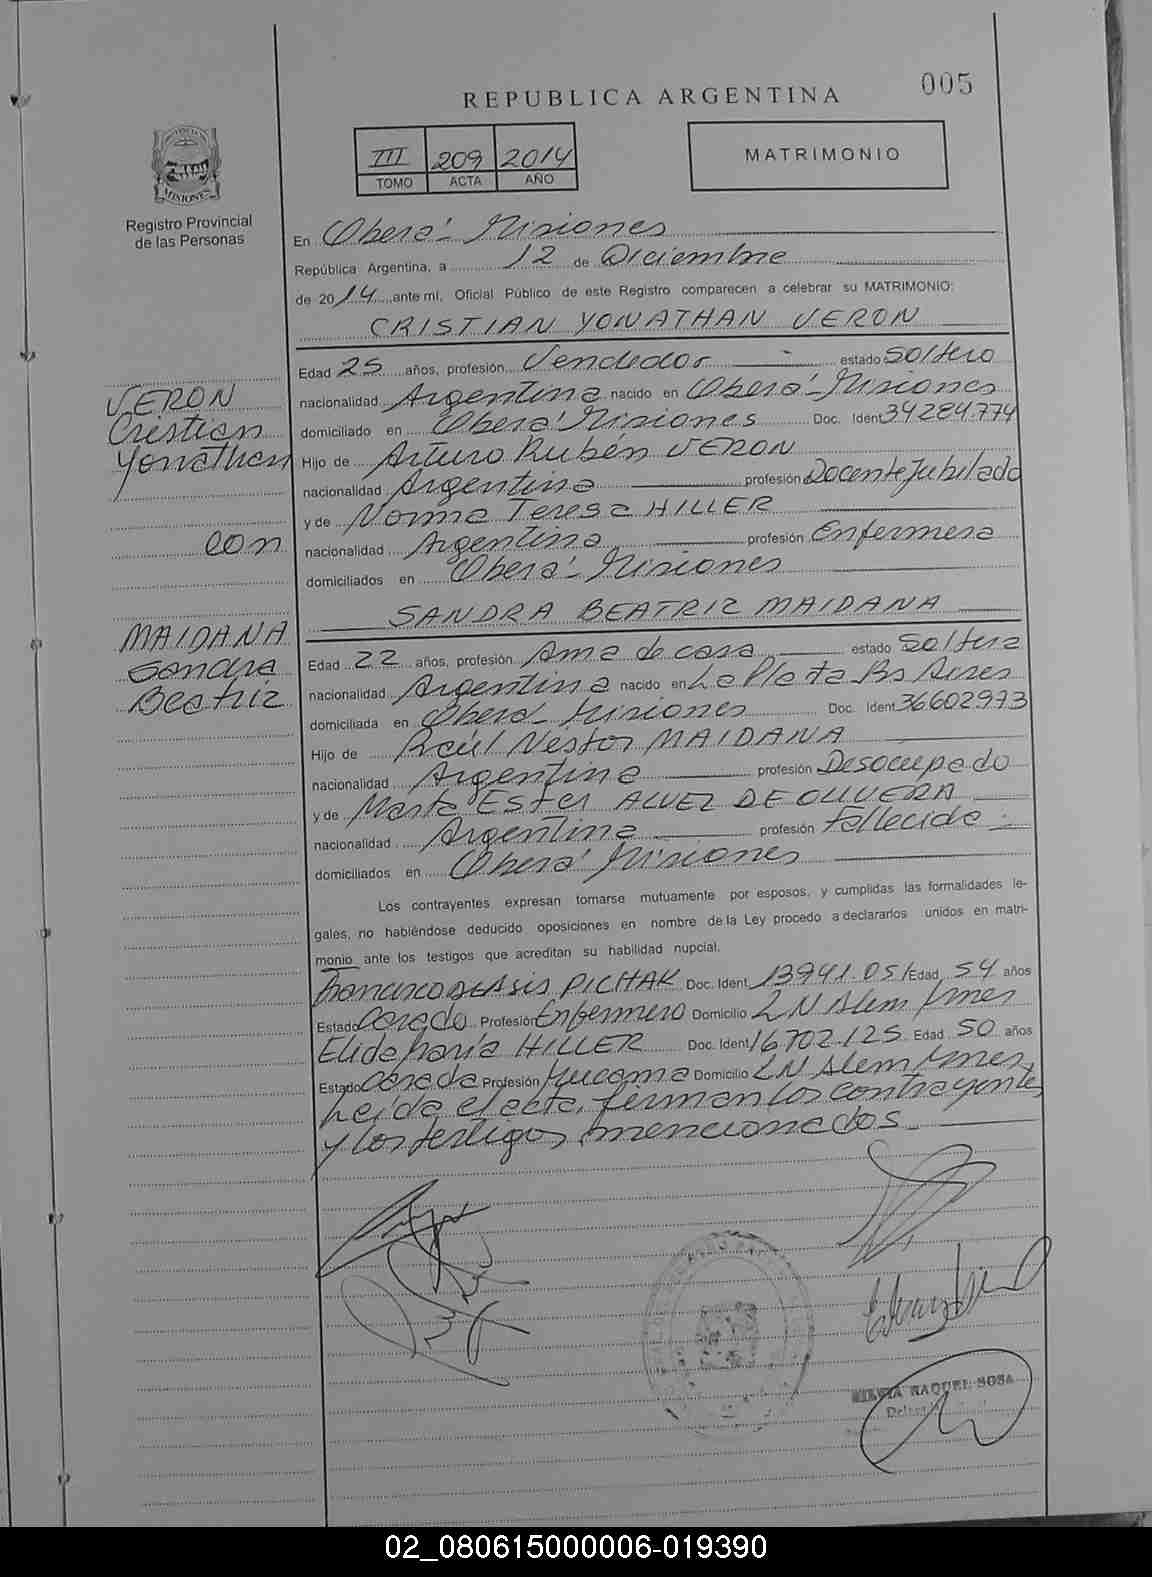 005
REPUBLICA ARGENTINA
III 209 2014
TOMO ACTA AÑO
MATRIMONIO
MISIONES
Registro Provincial
de las Personas
En Oberá - Misiones
República Argentina, a 12 de Diciembre
de 2014 ante mí, Oficial Público de este Registro comparecen a celebrar su MATRIMONIO:
CRISTIAN YONATHAN VERON
Edad 25 años, profesión Vendedor estado Soltero
nacionalidad Argentina nacido en Oberá - Misiones
domiciliado en Oberá Misiones Doc. Ident 34284774
Hijo de Arturo Rubén VERON
nacionalidad Argentina profesión Docente Jubilado
y de Norma Teresa HILLER
nacionalidad Argentina profesión Enfermera
domiciliados en Oberá - Misiones
VERON
Cristian
Yonathan
con
MAIDANA
Sandra
Beatriz
SANDRA BEATRIZ MAIDANA
Edad 22 años, profesión Ama de casa estado Soltera
nacionalidad Argentina nacido en La Plata Bs Aires
domiciliada en Oberá - Misiones Doc. Ident 36602973
Hijo de Raúl Néstor MAIDANA
nacionalidad Argentina profesión Desocupado
y de Marta Ester ALVEZ DE OLIVERA
nacionalidad Argentina profesión Fallecida
domiciliados en Oberá Misiones
Los contrayentes expresan tomarse mutuamente por esposos, y cumplidas las formalidades le-
gales, no habiéndose deducido oposiciones en nombre de la Ley procedo a declararlos unidos en matri-
monio ante los testigos que acreditan su habilidad nupcial.
Francisco de Asis PICHAK Doc. Ident 13941.051 Edad 54 años
Estado Casado Profesión Enfermero Domicilio LN Alem Mnes
Elida María HILLER Doc. Ident 16702.125 Edad 50 años
Estado Casada Profesión Mucama Domicilio LN Alem Mnes
Leída el acta, firman los contrayentes
y los testigos mencionados.
RAQUEL SOSA
02_080615000006-019390